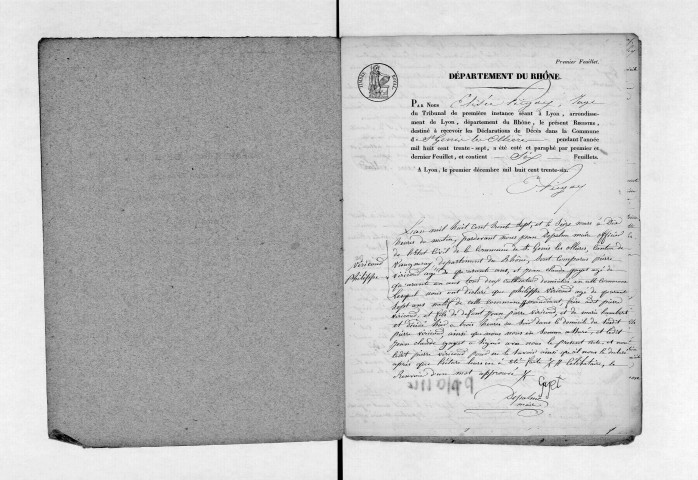 Premier Feuillet.
DÉPARTEMENT DU RHÔNE.
TIMBRE ROYAL
PAR NOUS Juge
du Tribunal de première instance séant à Lyon, arrondisse-
ment de Lyon, département du Rhône, le présent REGISTRE,
destiné à recevoir les Déclarations de Décès dans la Commune
de St Genis les Ollières pendant l'année
mil huit cent trente-sept, a été coté et paraphé par premier et
dernier Feuillet, et contient Six Feuillets.
A Lyon, le premier décembre mil huit cent trente-six.
L'an mil huit cent trente sept, et le seize mars à dix
heures du matin, pardevant nous maire officier
de l'Etat Civil de la Commune de St Genis les Ollières, Canton de
Vaugneray, département du Rhône, sont comparus pierre
véricend agé de quarante ans, et jean claude gayet agé de
quarante un ans tous deux cultivateurs domiciliés en cette Commune
lesquels nous ont déclaré que philippe véricend agé de quarante
sept ans natif de cette commune frère dudit pierre
véricend, et fils de défunt jean pierre véricend, et de
et décédé hier à trois heures du soir dans le domicile dudit
pierre véricend, ainsi que nous nous en sommes assuré, et ledit
jean claude gayet a signé avec nous le présent acte, et non
ledit pierre véricend pour ne le savoir ainsi qu'il nous l'a déclaré
après que lecture leur en a été faite célibataire, le
Renvoi d'un mot approuvé
véricend
philippe
Gayet
maire